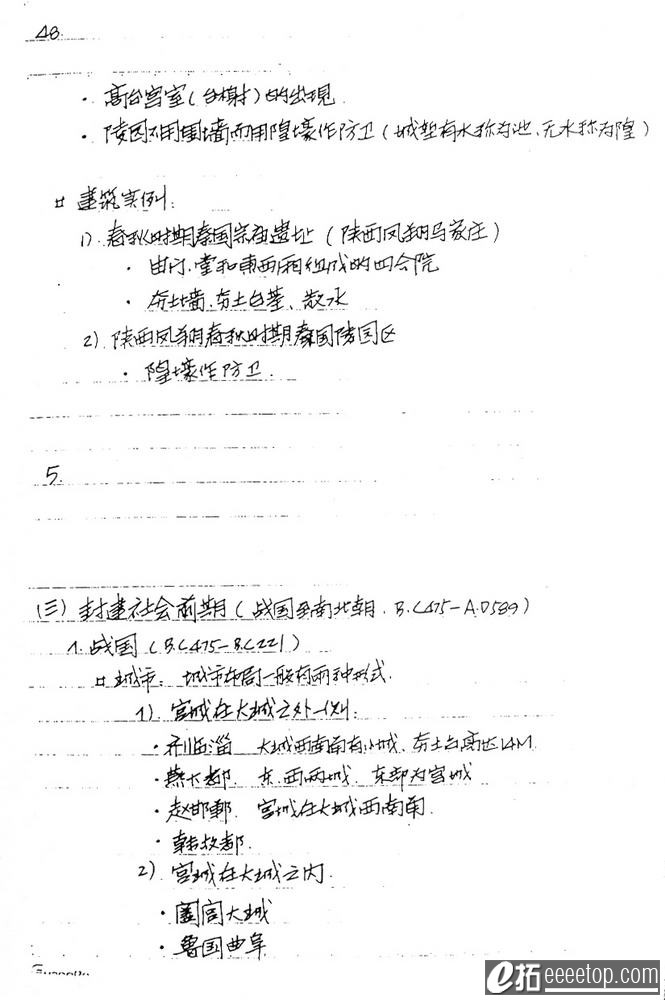 48.
· 高台宫室(台榭)的出现
· 陵园不用围墙而用隍壕作防卫(城堑有水称为池、无水称为隍)
建筑实例:
1). 春秋时期秦国宗庙遗址(陕西凤翔马家庄)
· 由门.堂和東西厢组成的四合院
· 夯土墙.夯土台基、散水
2). 陕西凤翔春秋时期秦国陵园区
· 隍壕作防卫.
5.
(三) 封建社会前期(战国至南北朝. B.C475-A.D589)
1. 战国(B.C475-B.C221)
城市: 城市布局一般有两种形式.
1). 宫城在大城之外一侧:
· 齐临淄 大城西南面有小城、夯土台高达14M
· 燕下都. 东.西两城. 东部为宫城
· 赵邯郸. 宫城在大城西南面.
· 韩故都.
2) 宫城在大城之内.
· 大城
· 魯国曲阜
e拓eeeetop.com